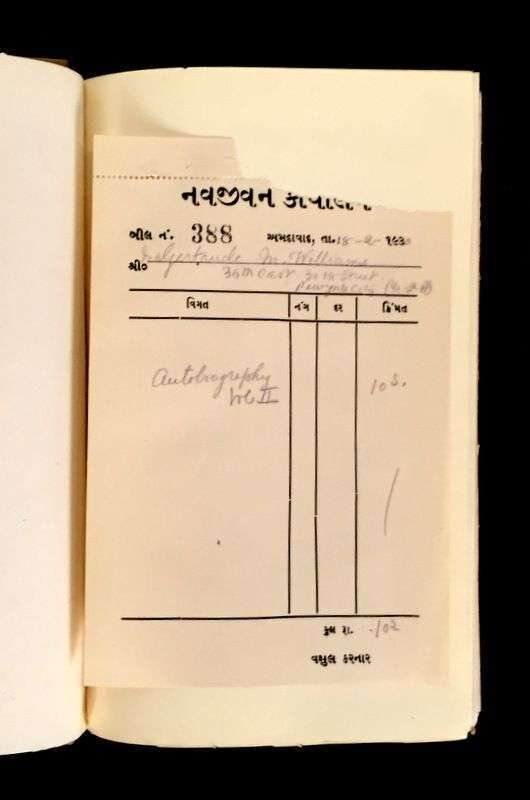 નવજીવન કાર્યાલય
બીલ નં. 388 અમદાવાદ, તા. 18-2-૧૯૩૦
શ્રી૦ Gertrude M. Williams
35th East 30th Street
New York City
વિગત નંગ દર કિંમત
Autobiography 10 S.
Vol II
કુલ રૂા.
વસુલ કરનાર